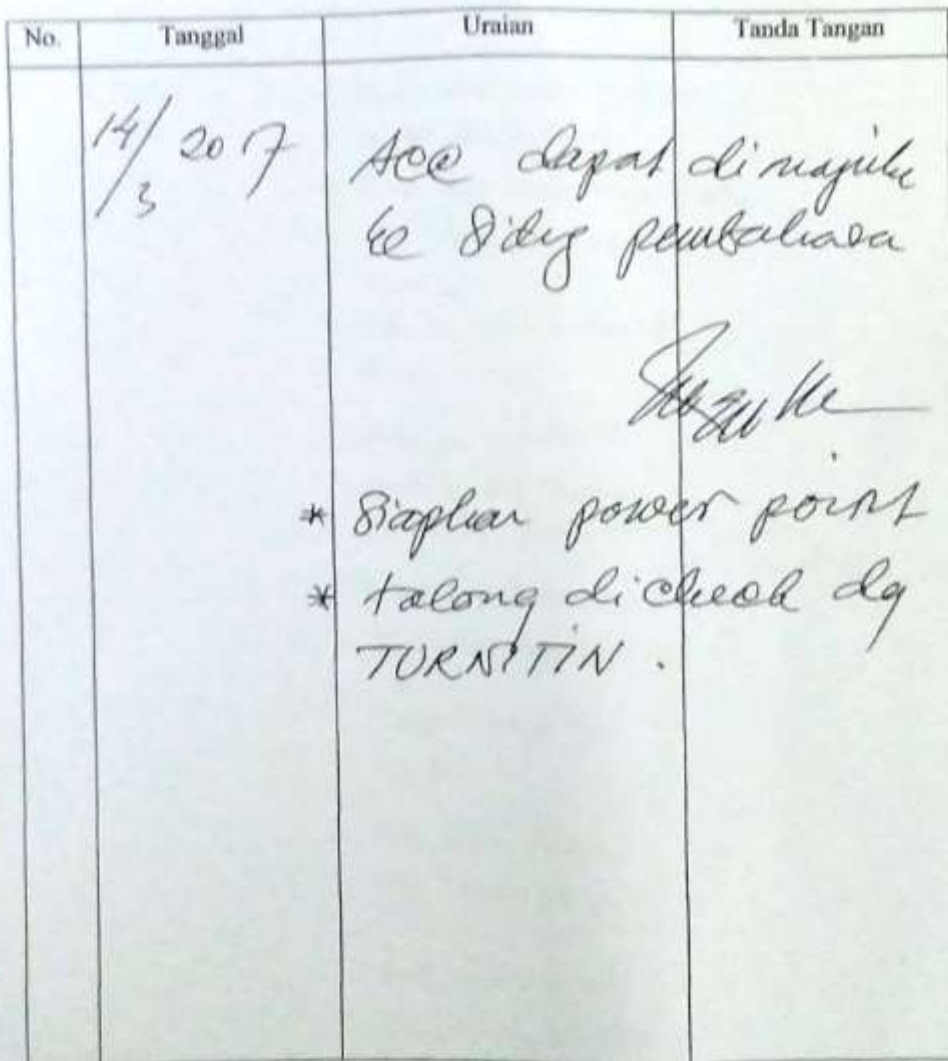 No. Tanggal Uraian Tanda Tangan
14/3 2017 Acc dapat dimajuke
ke Sidg pembahasa
* Siapkan power point
* tolong dicheck dg
TURNITIN.